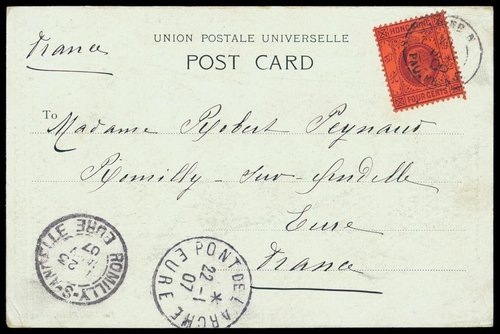 UNION POSTALE UNIVERSELLE
POST CARD
France
HONG KONG
FOUR CENTS
To
Madame Robert Peynaud
Romilly-sur-Andelle
Eure
France
ROMILLY-S-ANDELLE
23
07
EURE
PONT DE L'ARCHE
22-1
07
EURE